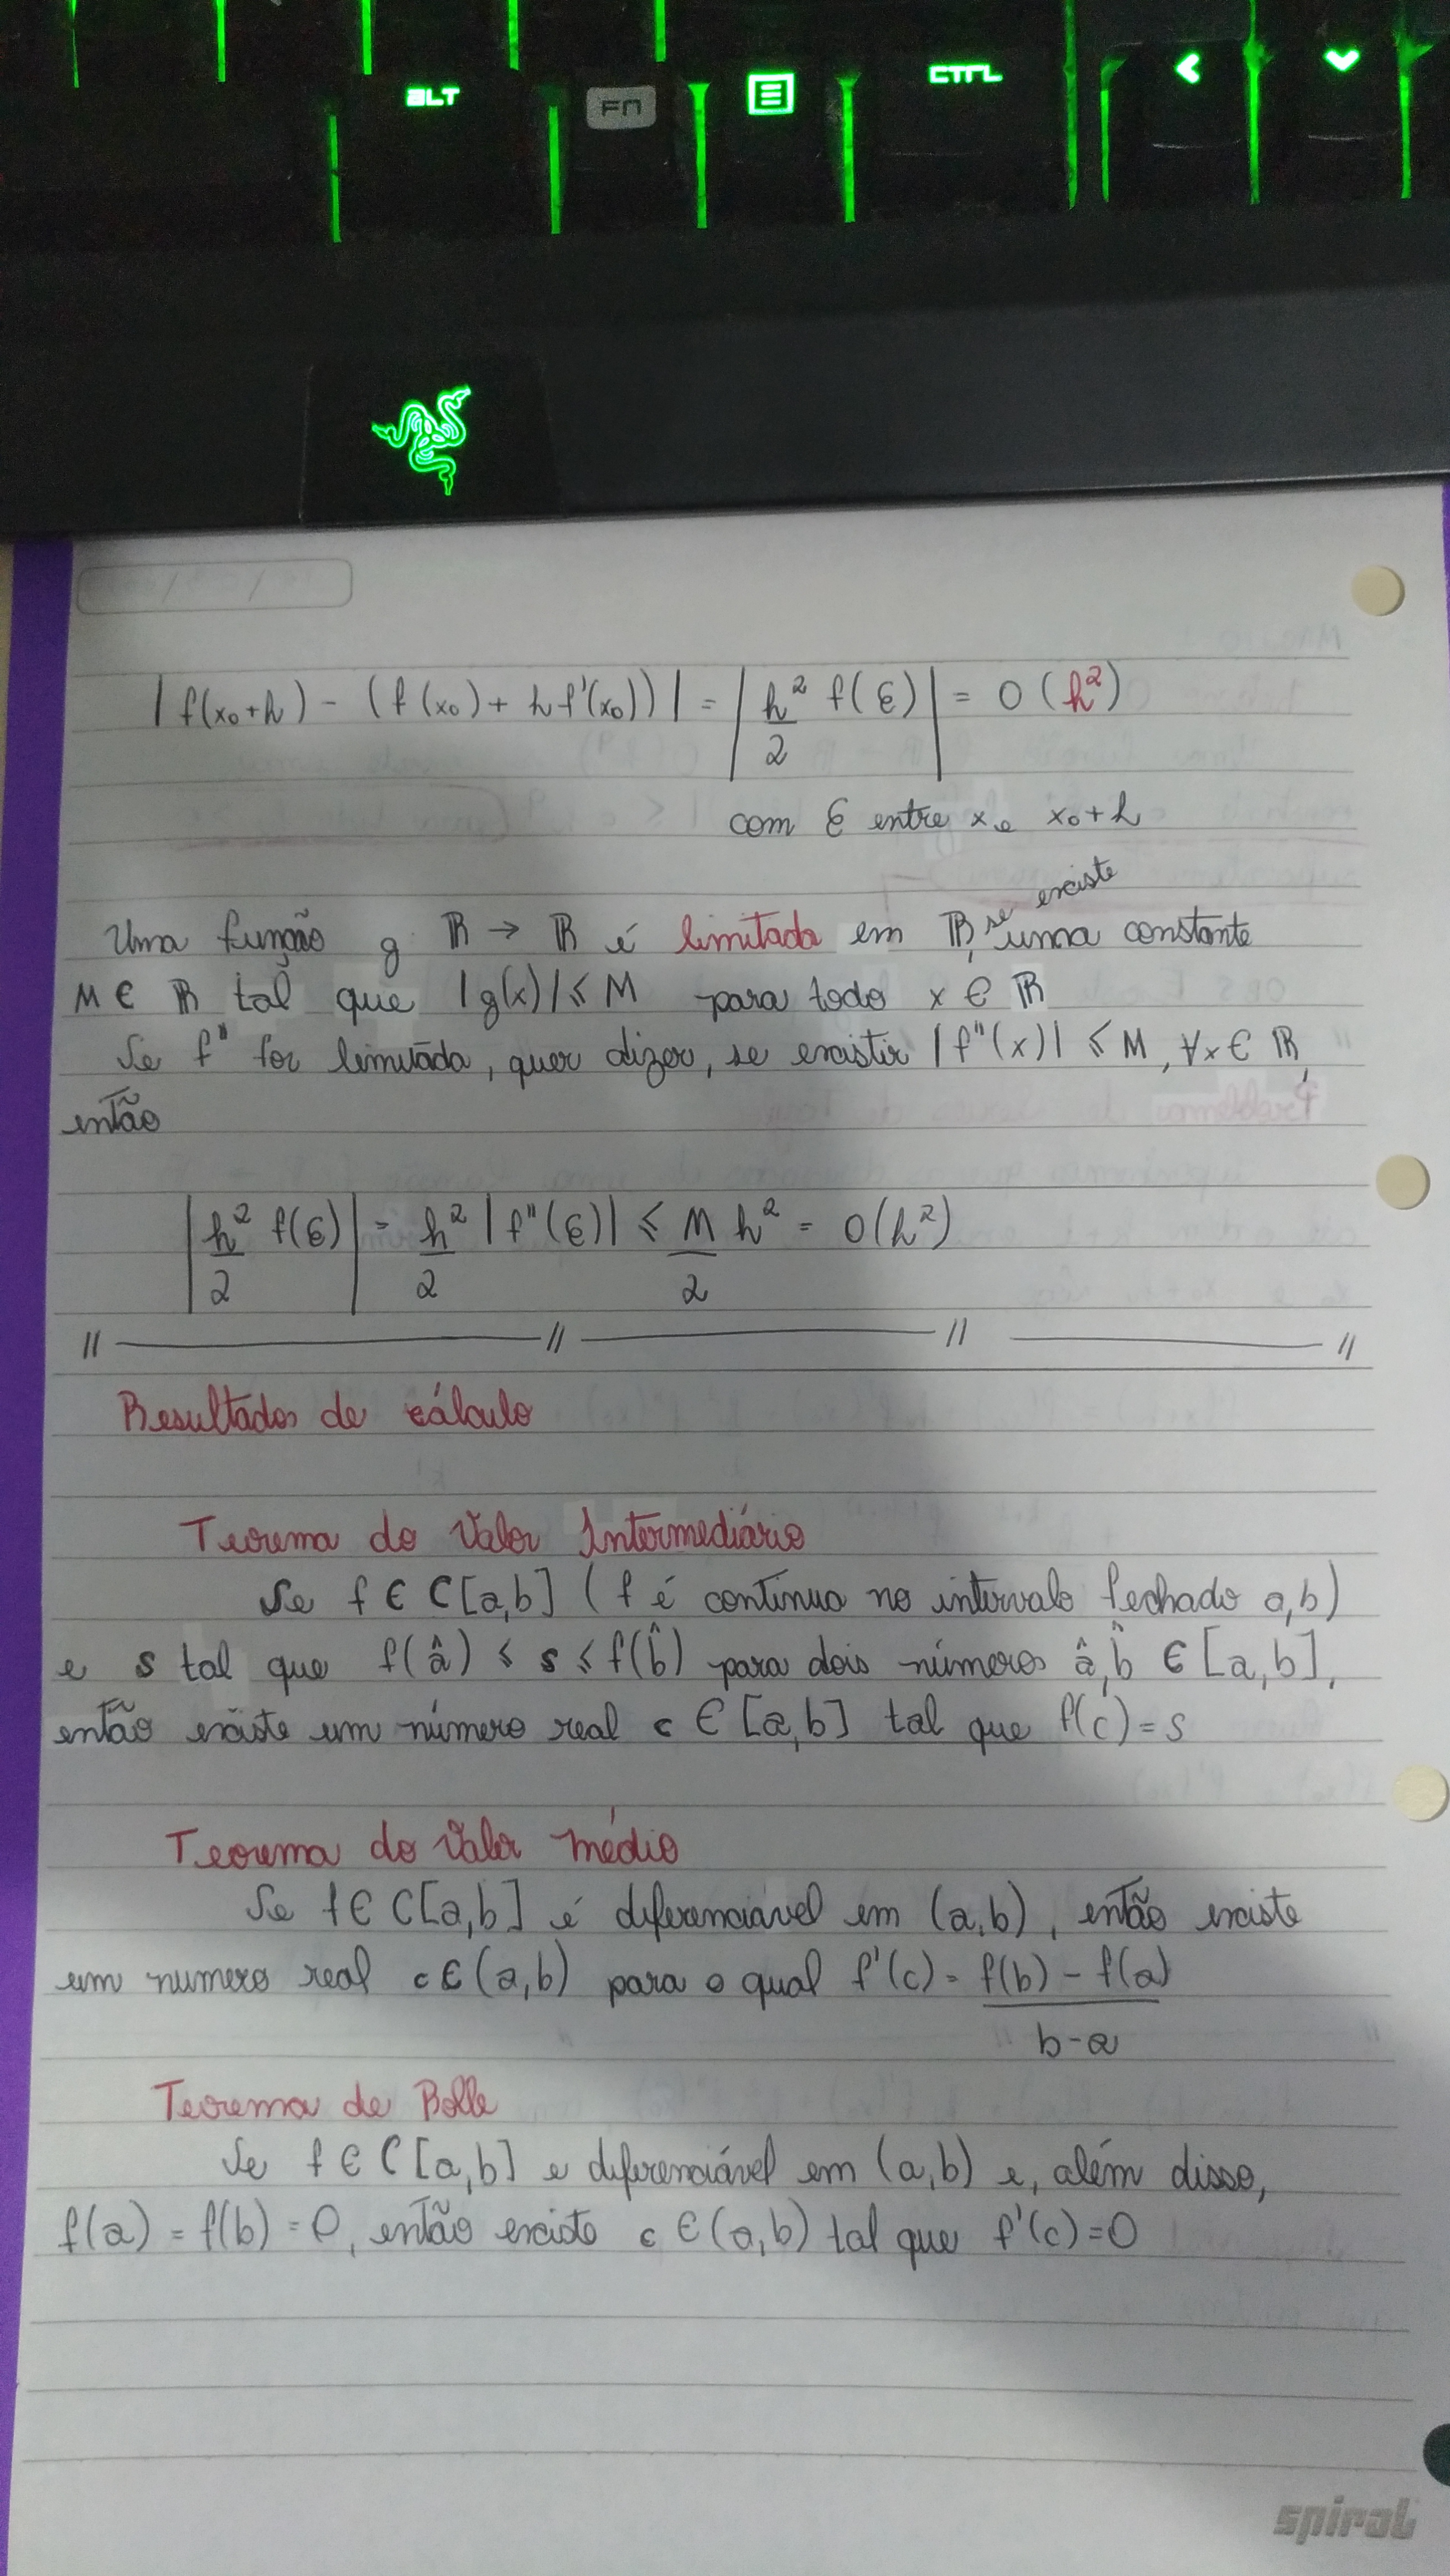 ALT FN CTRL
| f(x₀+h) - (f(x₀) + h f'(x₀)) | = | h²/2 f(ξ) | = O(h²)
com ξ entre x₀ e x₀+h
Uma função g ℝ → ℝ é limitada em ℝ, se existe uma constante
M ∈ ℝ tal que |g(x)| ≤ M para todo x ∈ ℝ
Se f" for limitada, quer dizer, se existir |f"(x)| ≤ M, ∀x ∈ ℝ,
então
| h²/2 f(ξ) | = h²/2 |f"(ξ)| ≤ M/2 h² = O(h²)
// // // //
Resultados de cálculo
Teorema do Valor Intermediário
Se f ∈ C[a,b] (f é contínua no intervalo fechado a,b)
e s tal que f(â) ≤ s ≤ f(b̂) para dois números â, b̂ ∈ [a,b],
então existe um número real c ∈ [a,b] tal que f(c) = s
Teorema do Valor médio
Se f ∈ C[a,b] é diferenciável em (a,b), então existe
um numero real c ∈ (a,b) para o qual f'(c) = f(b) - f(a) / b-a
Teorema de Rolle
Se f ∈ C[a,b] e diferenciável em (a,b) e, além disso,
f(a) = f(b) = 0, então existe c ∈ (a,b) tal que f'(c) = 0
spiral